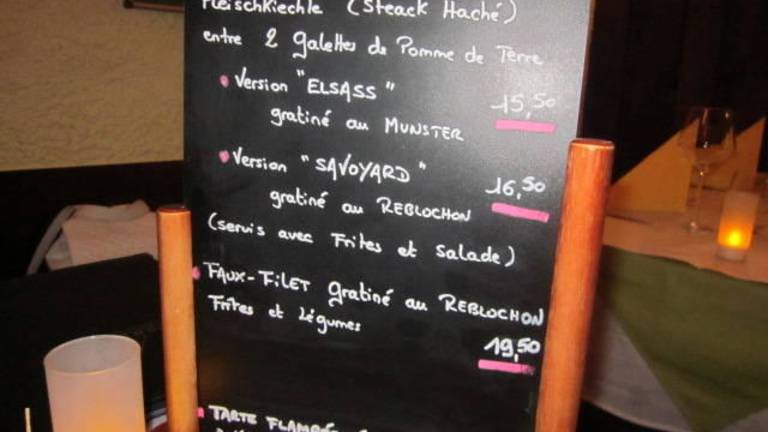 Fleischkiechle (Steack Haché)
entre 2 Galettes de Pomme de Terre
Version "ELSASS"
15,50
gratiné au MUNSTER
Version "SAVOYARD"
16,50
gratiné au REBLOCHON
(servis avec Frites et Salade)
FAUX-FILET gratiné au REBLOCHON
Frites et Légumes
19,50
TARTE